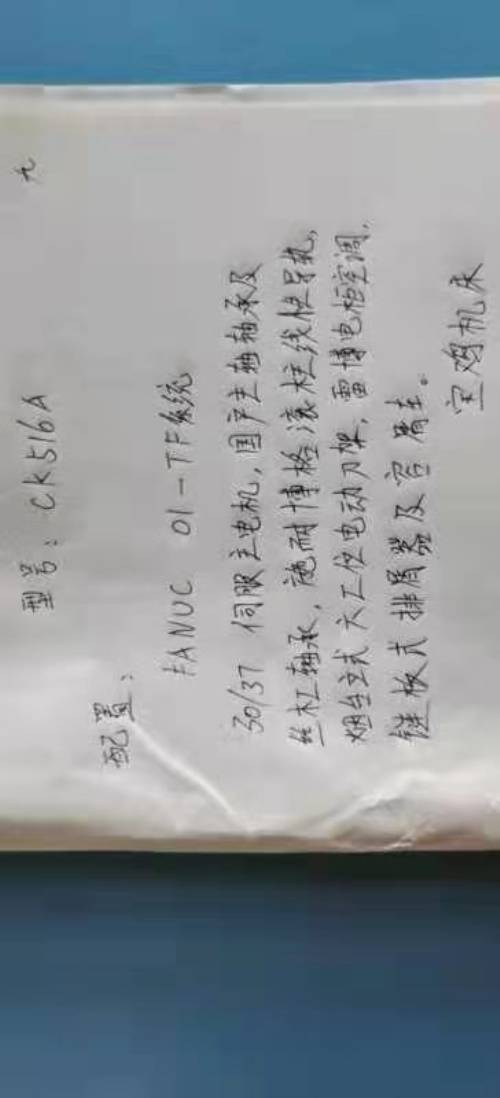 九
型号：CK516A
配置：
FANUC 01-TF系统
30/37 伺服主电机，国产主轴轴承及
丝杠轴承，施耐博格滚柱线性导轨，
烟台立式六工位电动刀架，雷博电柜空调，
链板式排屑器及容屑车。
宝鸡机床